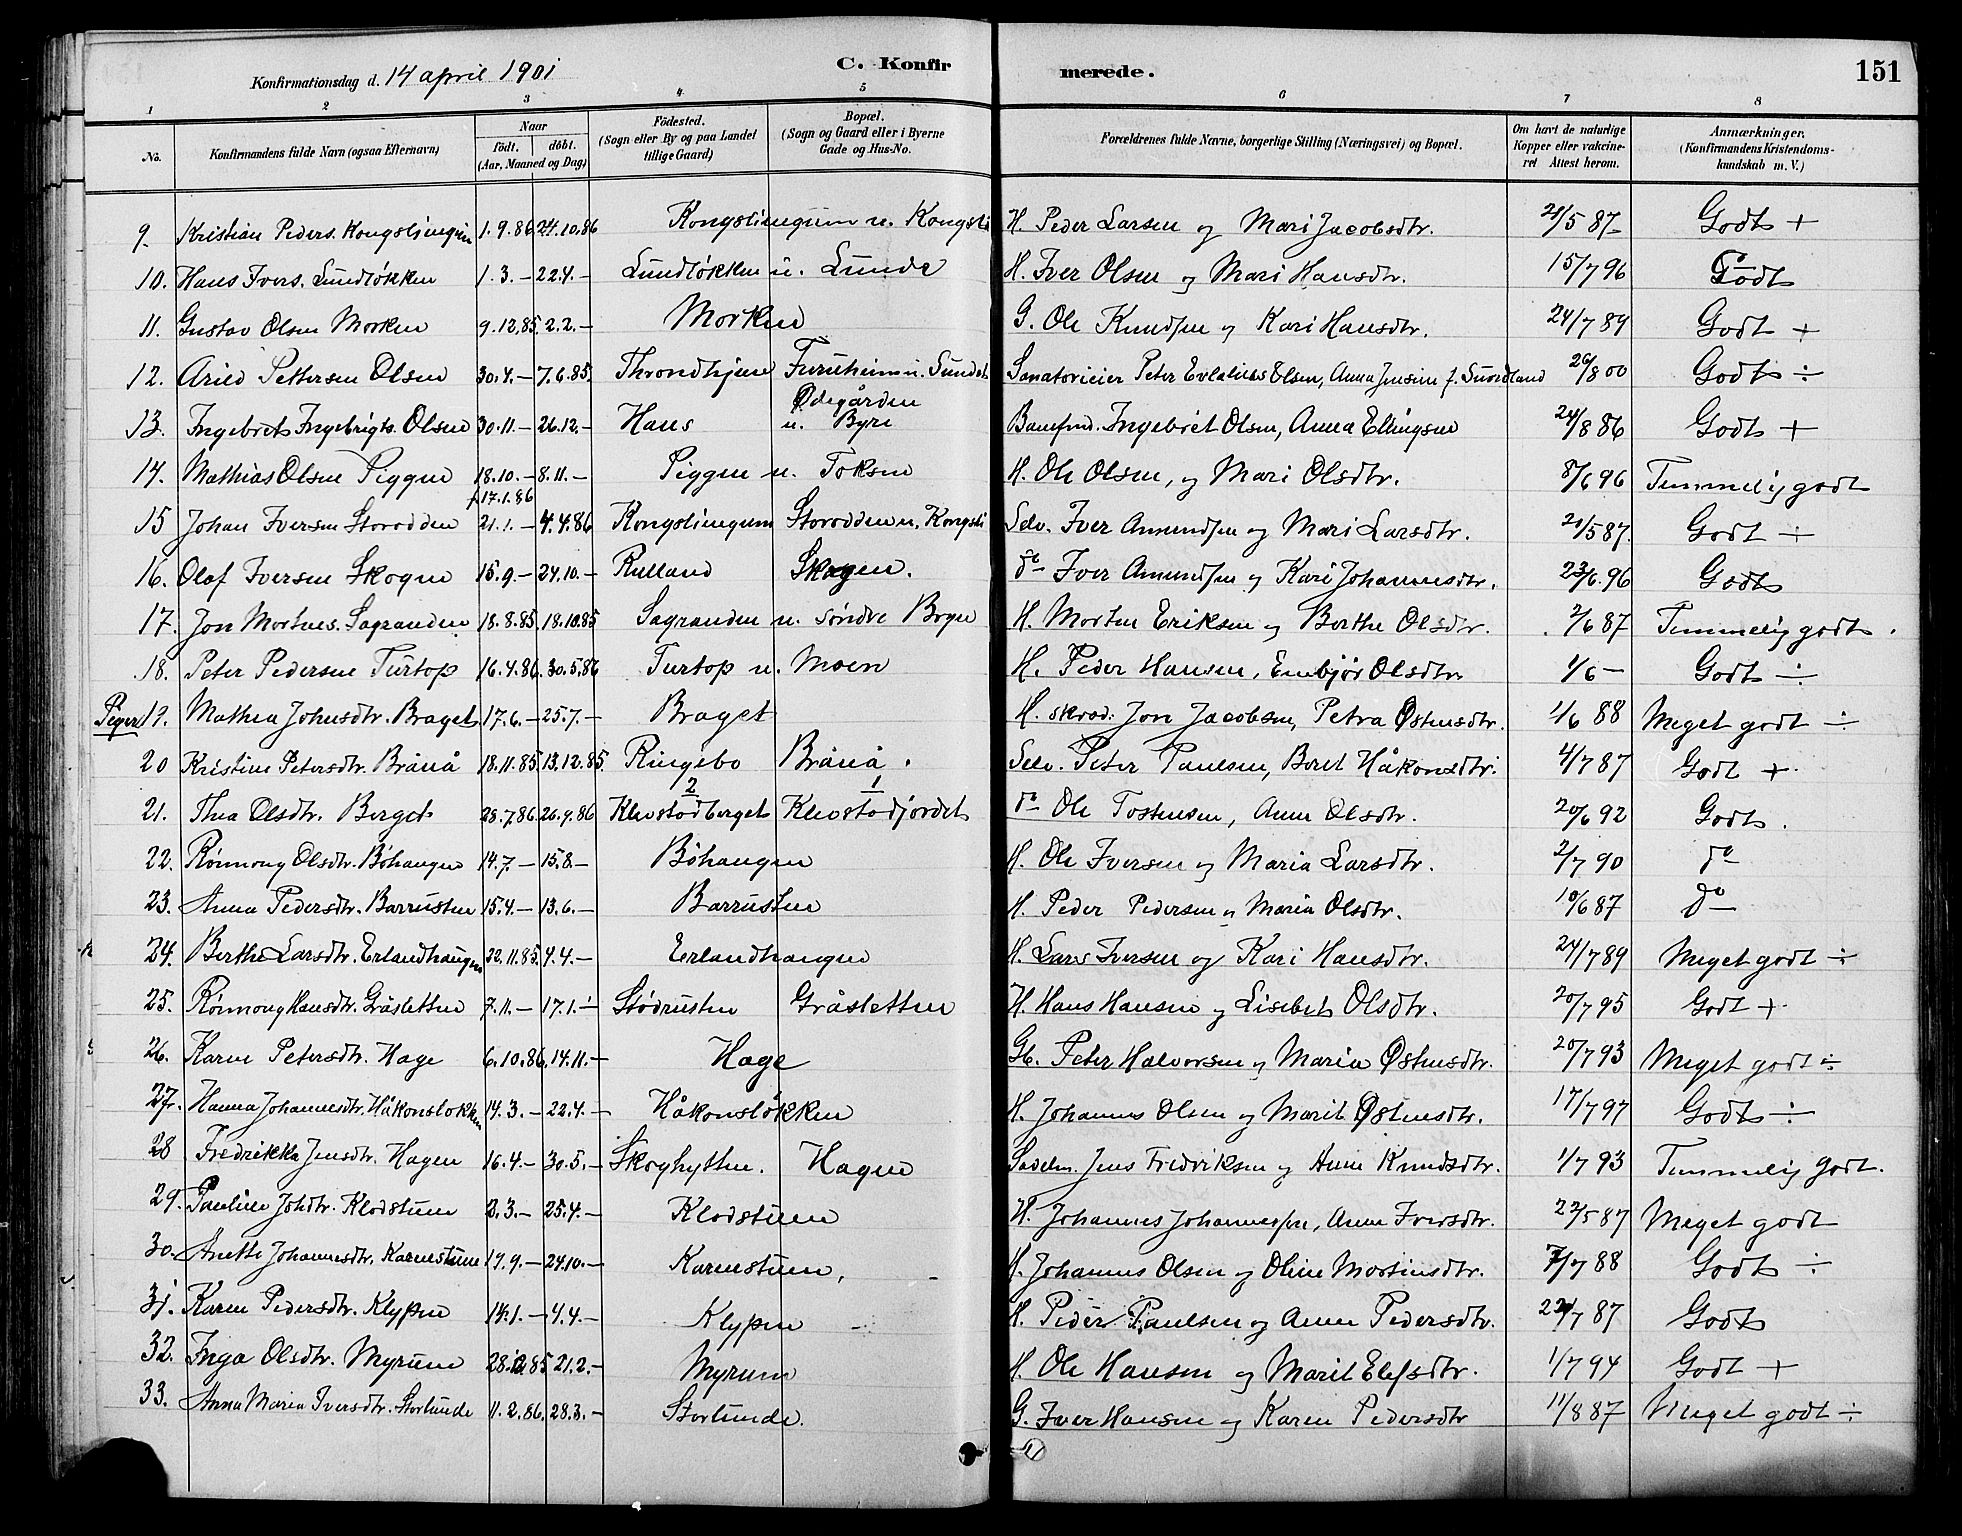 Konfirmationsdag d. 14 april 1901
C. Konfirmerede.
151
1 2 3 4 5 6 7 8
No. Konfirmandens fulde Navn (ogsaa Efternavn) Naar födt. döbt. (Aar, Maaned og Dag) Födested. (Sogn eller By og paa Landet tillige Gaard) Bopæl. (Sogn og Gaard eller i Byerne Gade og Hus-No. Forældrenes fulde Navne, borgerlige Stilling (Næringsvei) og Bopæl. Om havt de naturlige Kopper eller vakcineret Attest herom. Anmærkninger. (Konfirmandens Kristendomskundskab m. V.)
9. Kristian Peders. Kongslimgum 1.9.86 24.10.86 Kongslimgum u. Kongsli H. Peder Larsen og Mari Jacobsdtr. 21/5 87 Godt +
10. Hans Ivers. Lundløkken 1.3.- 22.4.- Lundløkken u. Lunde H. Iver Olsen og Mari Hansdtr. 15/7 96 Godt
11. Gustav Olsen Morken 9.12.85 2.2.- Morken G. Ole Knudsen og Kari Hansdtr. 24/7 89 Godt +
12. Arild Pettersen Olsen 30.4.- 7.6.85. Throndhjem Furuheim u. Sundet Sanatorieier Peter Olsen, Anna Jensine f. 26/8 00 Godt ÷
13. Ingebret Ingebrigts. Olsen 30.11.- 26.12.- Hans Ødegården u. Byre Banefmd. Ingebret Olsen, Anna Ellingsen 24/8 86 Godt +
14. Mathias Olsen Piggen 18.10.- 8.11.- Piggen u. Toksen H. Ole Olsen, og Mari Olsdtr. 8/6 96 Temmelig godt
f 17.1.86
15 Johan Iversen Storodden 21.1.- 4.4.86 Kongslimgum Storodden u. Kongsli Selv. Iver Amundsen og Mari Larsdtr. 21/5 87. Godt ÷
16. Olaf Iversen Skogen 15.9.- 24.10.- Rulland Skogen. do Iver Amundsen og Kari Johannesdtr. 23/6.96 Godt
17. Jon Mortens. Sagranden 18.8.85. 18.10.85 Sagranden u. søndre Brye H. Morten Eriksen og Berthe Olsdtr. 2/6 87 Temmelig godt.
18. Peter Pedersen Turtop 16.4.86. 30.5.86 Turtop u. Moen H. Peder Hansen, Embjør Olsdtr 1/6 - Godt ÷
Piger 19. Mathea Johnsdtr. Braget 17.6.- 25.7.- Braget H. skræd. Jon Jacobsen, Petra Østensdtr. 1/6 88 Meget godt ÷
20 Kristine Petersdtr. Brånå 18.11.85. 13.12.85. Ringebo Brånå. Selv. Peter Paulsen, Beret Håkonsdtr. 4/7 87 Godt +
2 1
21. Thea Olsdtr. Berget 28.7.86. 26.9.86 Klevstadberget Klevstadjordet do Ole Tostensen, Anne Olsdtr. 20/6 92 Godt.
22. Rønnoug Olsdtr. Bøhaugen 14.7.- 15.8- Bøhaugen H. Ole Iversen og Maria Larsdtr. 2/7 90 do
23. Anna Pedersdtr. Barrusten 15.4.- 13.6.- Barrusten H. Peder Pedersen og Maria Olsdtr. 10/6 87 do
24. Berthe Larsdtr. Erlandhaugen 22.11.85. 4.4.- Erlandhaugen H. Lars Iversen og Kari Hansdtr. 24/7 89 Meget godt ÷
25. Rønnoug Hansdtr. Gråsletten 7.11.- 17.1.- Stødrusten Gråsletten H. Hans Hansen og Lisebet Olsdtr. 20/7 95 Godt +
26. Karen Petersdtr. Hage 6.10.86. 14.11.- Hage Gb. Peter Halvorsen og Maria Østensdtr. 20/7 93 Meget godt ÷
27. Hanna Johannesdtr. Håkonsløkken 14.3.- 22.4.- Håkonsløkken H. Johannes Olsen og Marit Østensdtr. 17/7 97 Godt ÷
28 Fredrikka Jensdtr. Hagen 16.4.- 30.5.- Skoghytten. Hagen Sadelm. Jens Fredriksen og Anne Knudsdtr. 1/7 93 Temmelig godt.
29. Pauline Johdtr. Klodstuen 2.3.- 25.4.- Klodstuen H. Johannes Johannessen, Anne Iversdtr. 22/5 87 Meget godt
30. Anette Johannesdtr. Karnestuen 17.9.- 24.10.- Karnestuen, H. Johannes Olsen og Oline Mortinsdtr. 7/7 88 Godt ÷
31. Karen Pedersdtr. Klypen 14.1.- 4.4.- Klypen H. Peder Paulsen og Anne Pedersdtr. 22/7 87 Godt
32. Inga Olsdtr. Myruen 28.12.85 21.2.- Myruen H. Ole Hansen og Marit Elefsdtr. 1/7 94 Godt +
33. Anna Maria Iversdtr. Storlunde 11.2.86. 28.3.- Storlunde. G. Iver Hansen og Karen Pedersdtr 11/8 87 Meget godt ÷